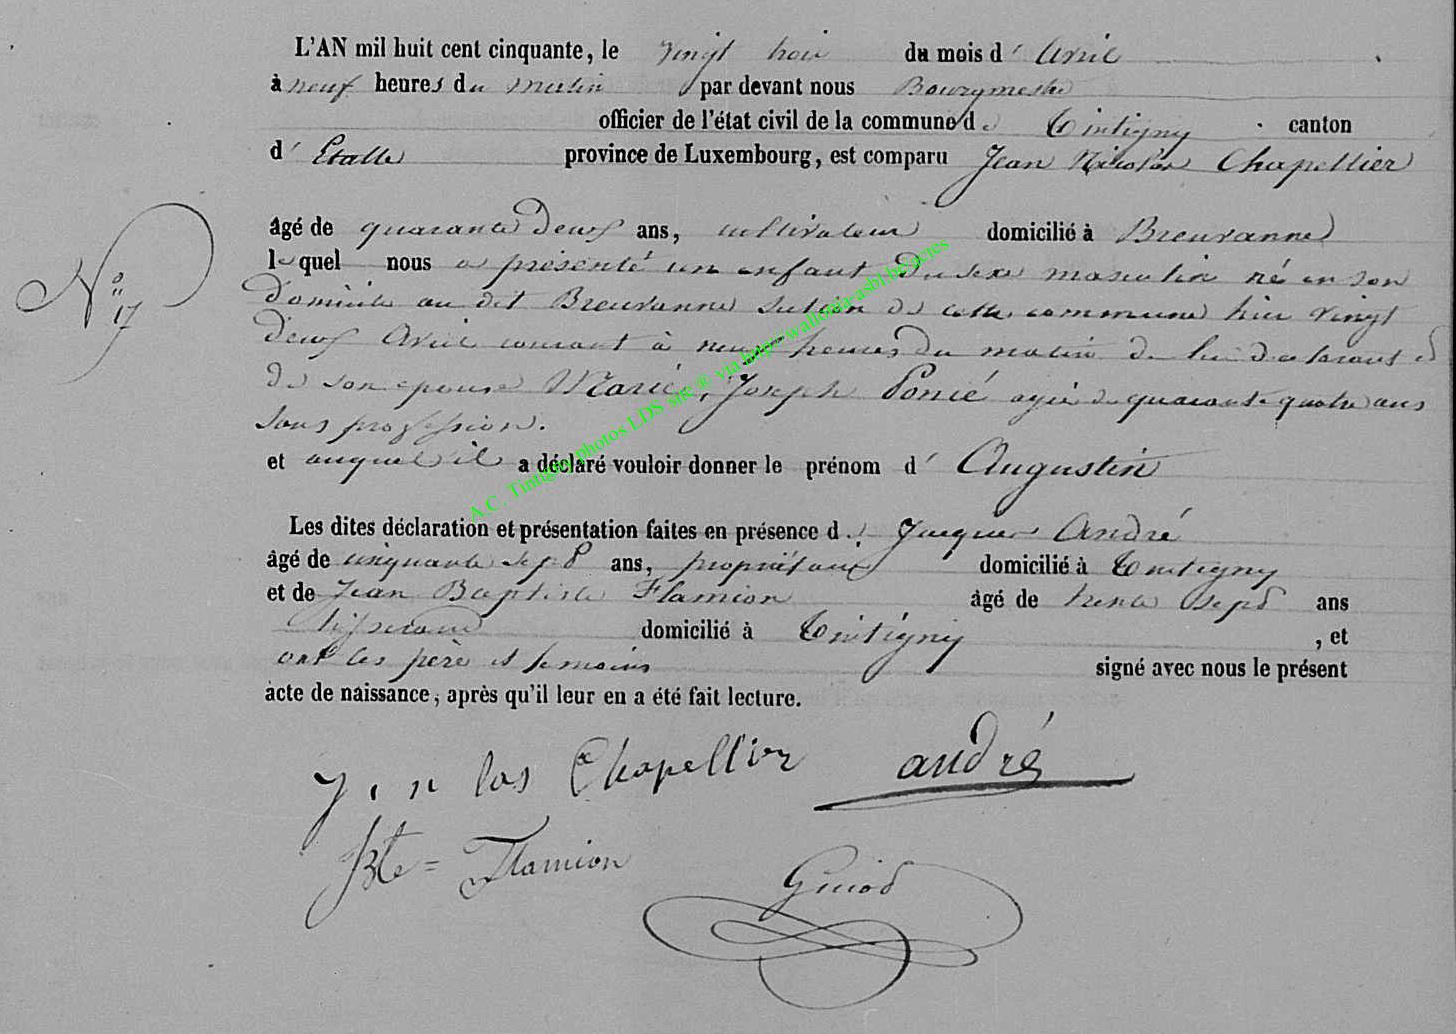 L'AN mil huit cent cinquante, le vingt trois du mois d' Avril
à neuf heures du matin par devant nous Bourgmestre
officier de l'état civil de la commune de Tintigny canton
d' Etalle province de Luxembourg, est comparu Jean Nicolas Chapellier
âgé de quarante deux ans, cultivateur domicilié à Breuvanne
lequel nous a présenté un enfant du sexe masculin né en son
N° 17
domicile au dit Breuvanne section de cette commune hier vingt
deux Avril courant à neuf heures du matin de lui déclarant et
de son épouse Marie, Joseph Poncé agée de quarante quatre ans
sans profession.
et auquel il a déclaré vouloir donner le prénom d' Augustin
Les dites déclaration et présentation faites en présence de Jacques André
âgé de cinquante sept ans, propriétaire domicilié à Tintigny
et de Jean Baptiste Flamion âgé de trente sept ans
tisserand domicilié à Tintigny , et
ont les père et témoins signé avec nous le présent
acte de naissance, après qu'il leur en a été fait lecture.
J. n las Chapellier andré
JBte = Flamion
Guiod
A.C. Tintigny photos LDS site ® via http://wallonia-asbl.be/actes